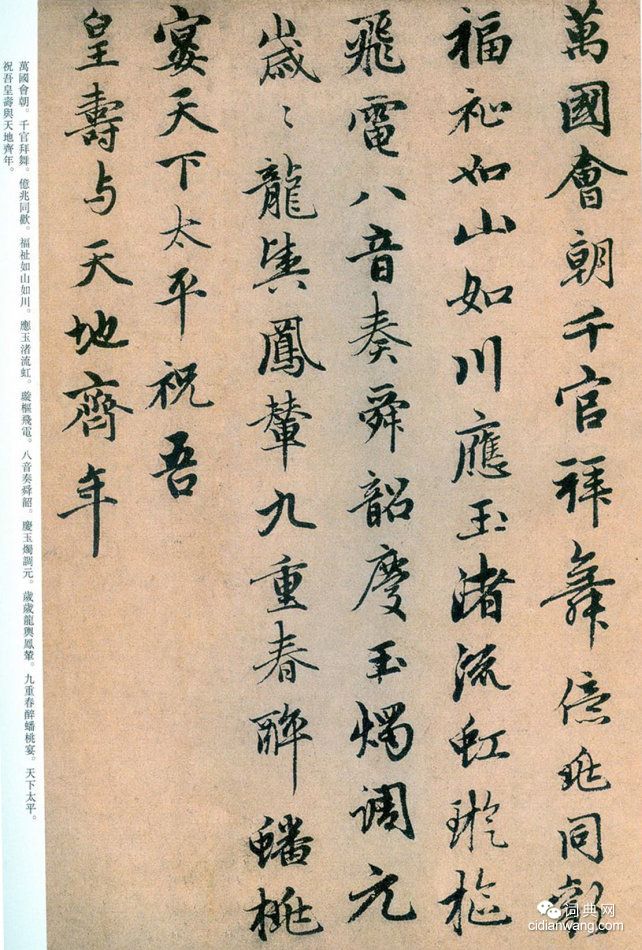 萬國會朝千官拜舞億兆同歡
福祉如山如川應玉渚流虹璇樞
飛電八音奏舜韶慶玉燭調元
歲〻龍輿鳳輦九重春醉蟠桃
宴天下太平祝吾
皇壽与天地齊年
萬國會朝。千官拜舞。億兆同歡。福祉如山如川。應玉渚流虹。璇樞飛電。八音奏舜韶。慶玉燭調元。歲歲龍輿鳳輦。九重春醉蟠桃宴。天下太平。
祝吾皇壽與天地齊年。
词典网
cidianwang.com